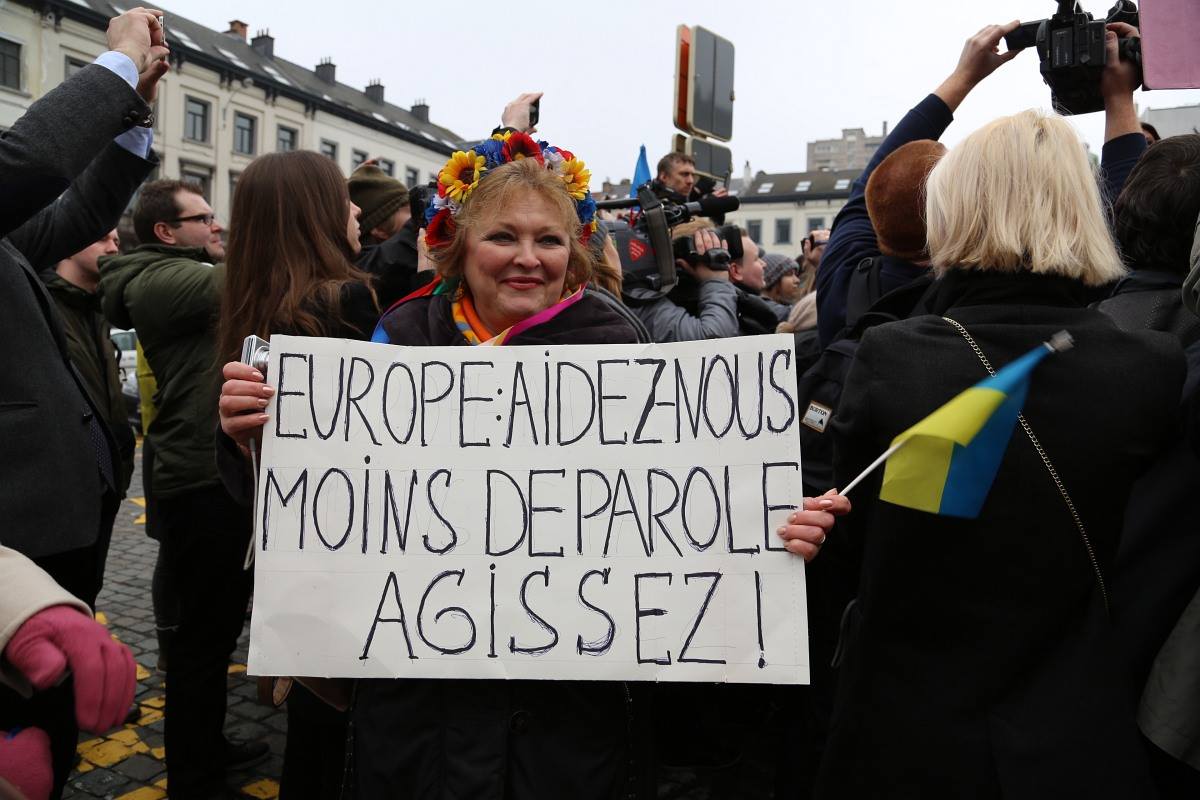 EUROPE:AIDEZ-NOUS
MOINS DE PAROLE
AGISSEZ!
BURTON